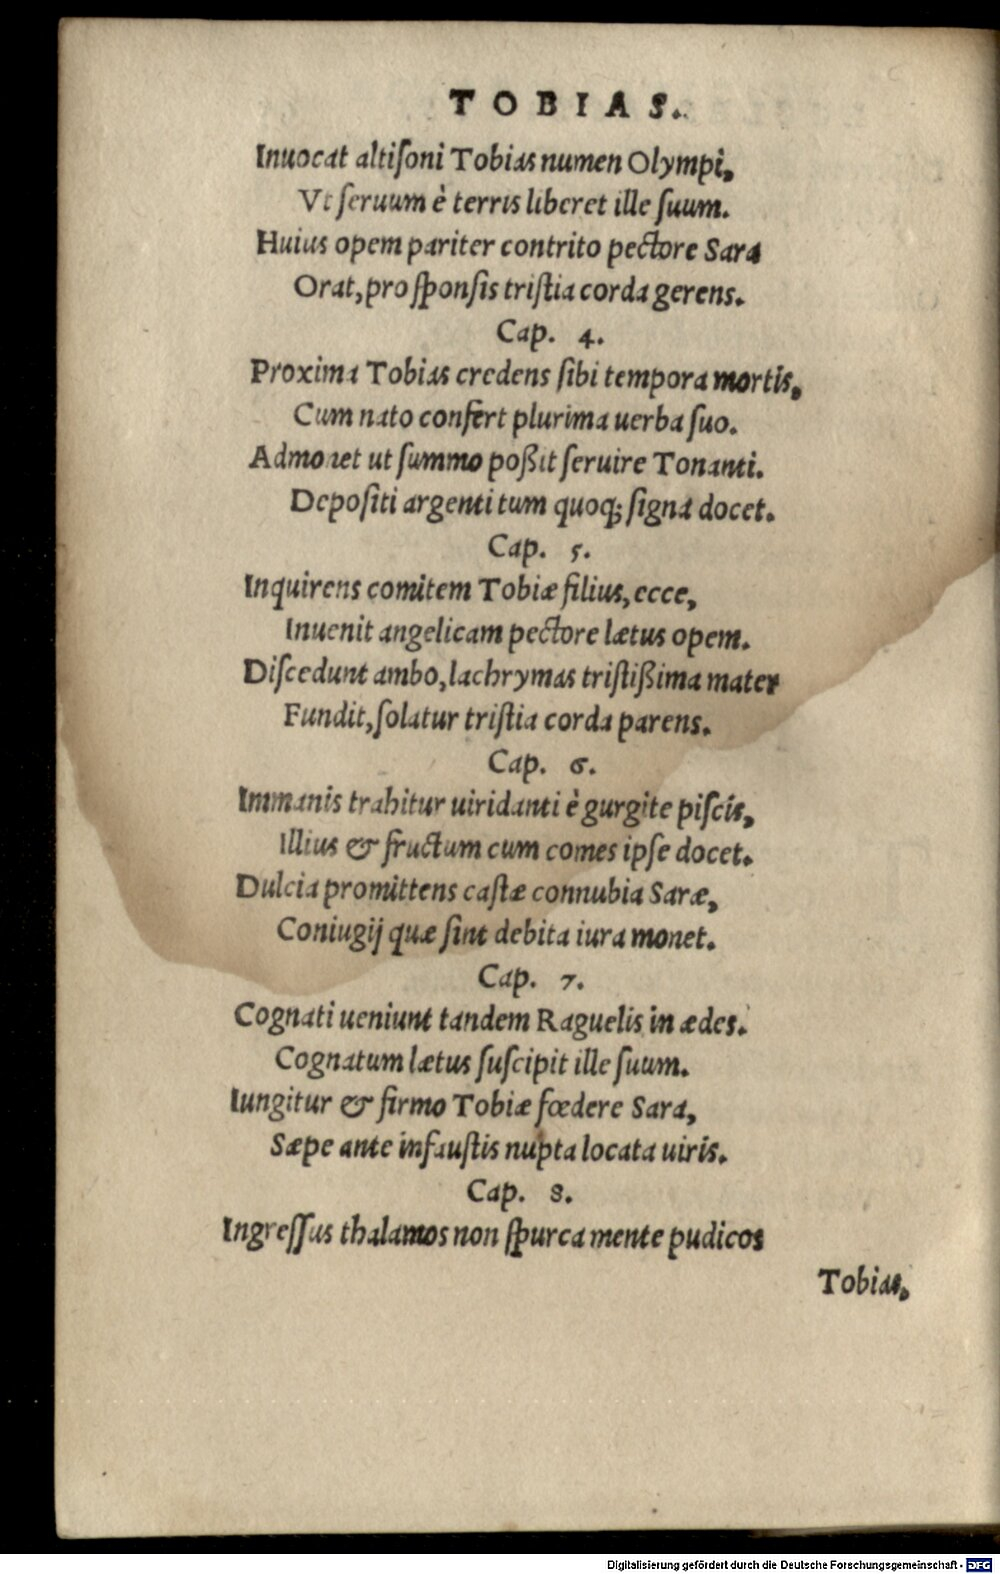 TOBIAS.
Inuocat altiſoni Tobias numen Olympi,
Vt ſeruum è terris liberet ille ſuum.
Huius opem pariter contrito pectore Sara
Orat, pro ſponſis triſtia corda gerens.
Cap. 4.
Proxima Tobias credens ſibi tempora mortis,
Cum nato confert plurima uerba ſuo.
Admonet ut ſummo poßit ſeruire Tonanti.
Depoſiti argenti tum quoq; ſigna docet.
Cap. 5.
Inquirens comitem Tobiæ filius, ecce,
Inuenit angelicam pectore lætus opem.
Diſcedunt ambo, lachrymas triſtißima mater
Fundit, ſolatur triſtia corda parens.
Cap. 6.
Immanis trahitur uiridanti è gurgite piſcis,
Illius & fructum cum comes ipſe docet.
Dulcia promittens caſtæ connubia Saræ,
Coniugij quæ ſint debita iura monet.
Cap. 7.
Cognati ueniunt tandem Raguelis in ædes.
Cognatum lætus ſuſcipit ille ſuum.
Iungitur & firmo Tobiæ fœdere Sara,
Sæpe ante infauſtis nupta locata uiris.
Cap. 8.
Ingreſſus thalamos non ſpurca mente pudicos
Tobias,
Digitalisierung gefördert durch die Deutsche Forschungsgemeinschaft - DFG